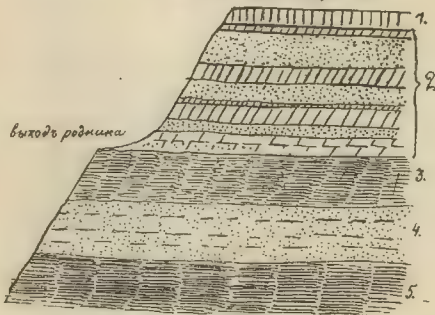 1.
2
выходъ родника
3.
4.
5.